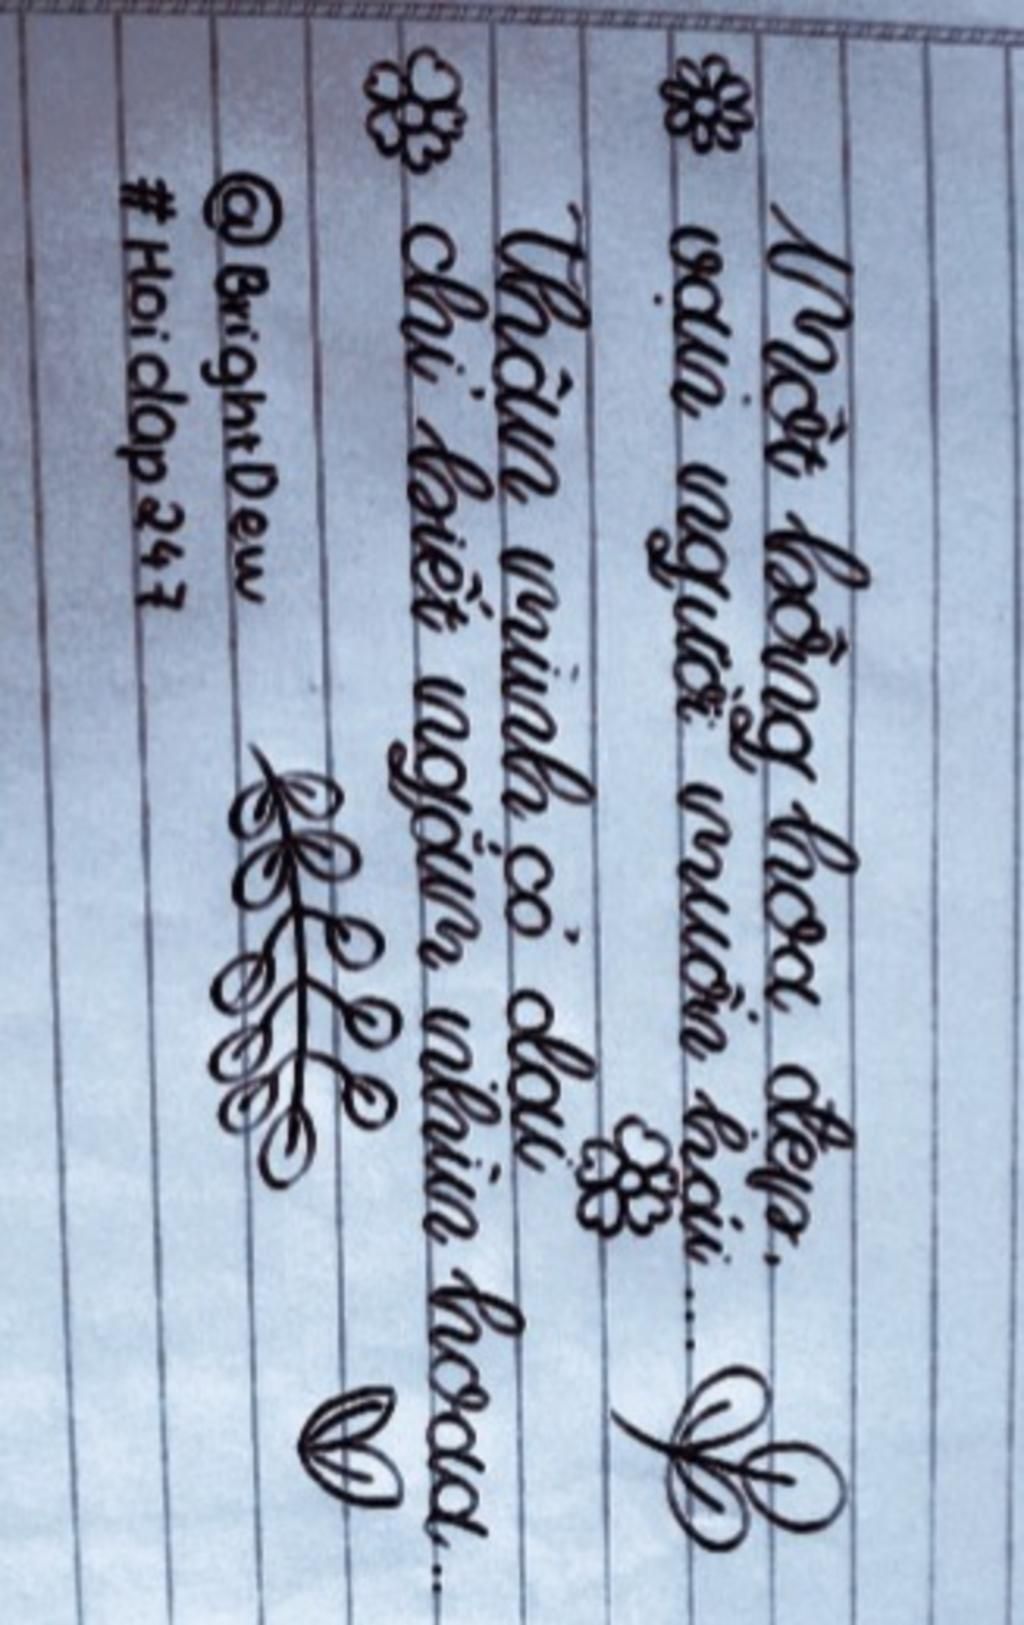 Một bông hoa đẹp,
vạn người muốn hái....
Thân mình cỏ dại
chỉ biết ngắm nhìn hoa...
@BrightDew
#Hoidap247